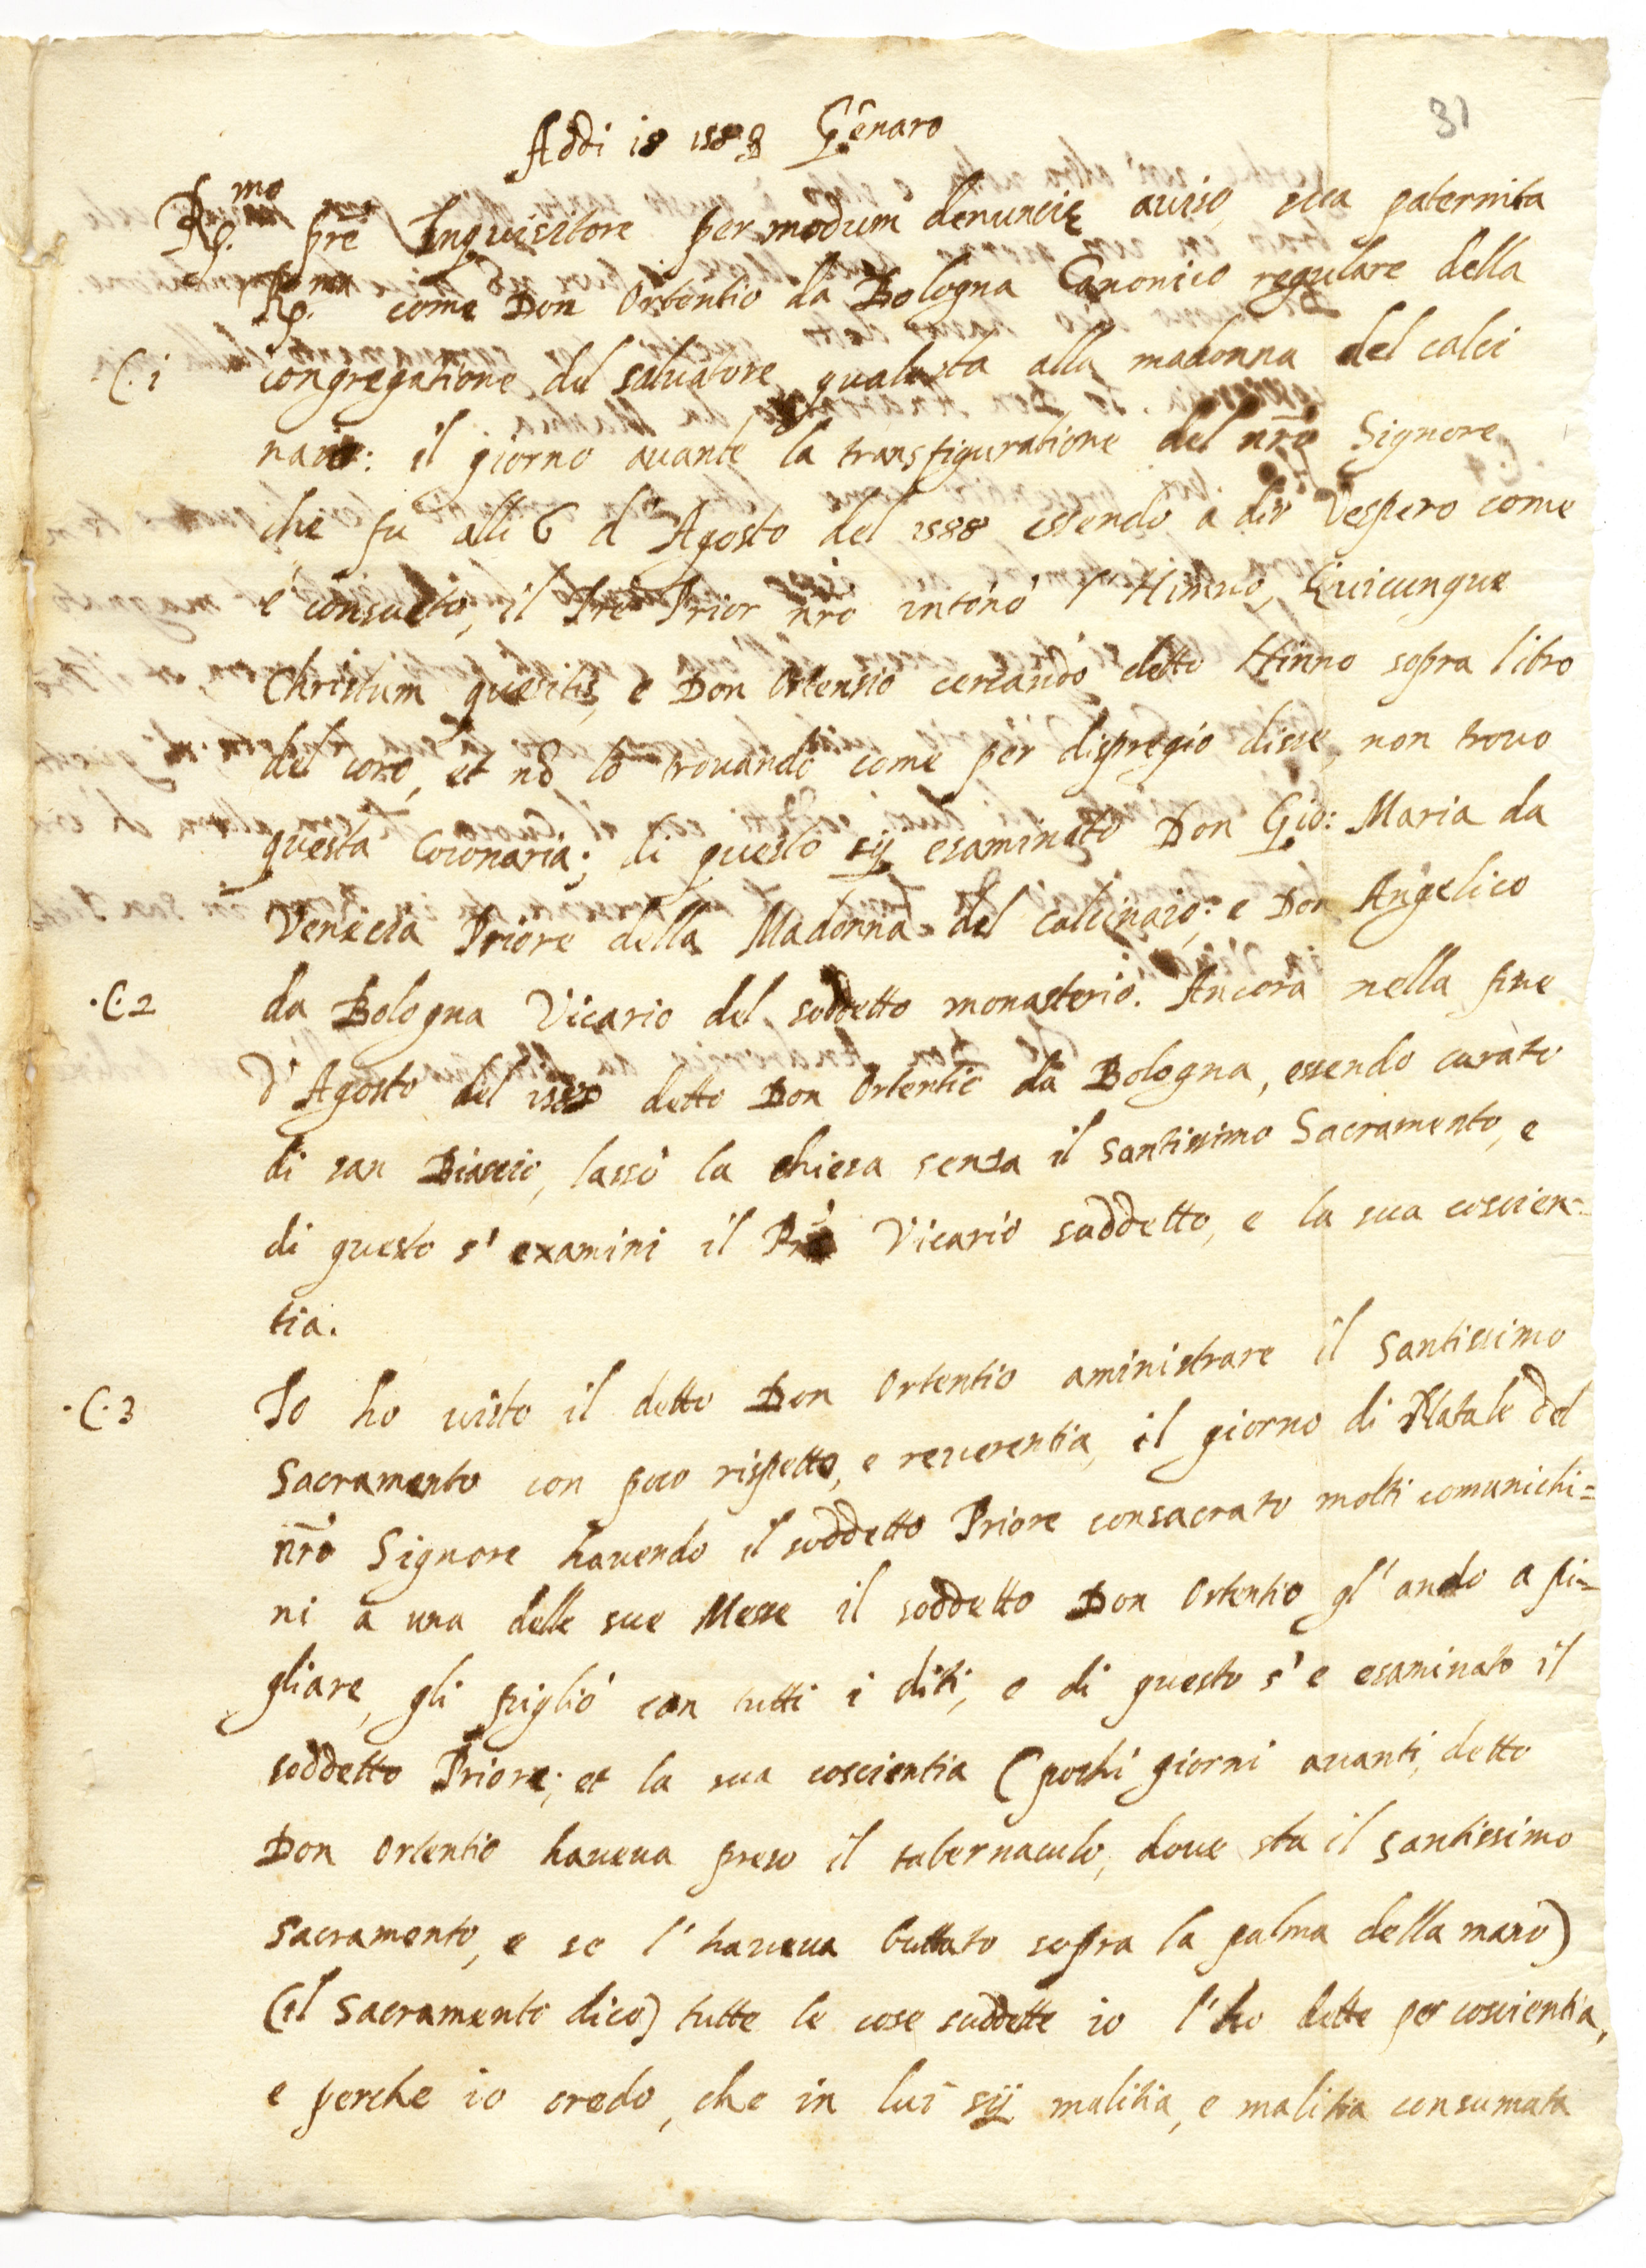 31
Addi 18 1588 Gēnaro
R.mo pre Inquisitore per modum denuncię auiso sua paternita
R.ma come Don Ortentio da Bologna Canonico regulare della
.C.1 congregatione del saluatore qual sta alla madonna del calci
naio: il giorno auante la transfiguratione del nrō Signore
che fu alli 6 d'Agosto del 1588 essendo à dir Vespero come
e' consueto, il Pre Prior nro intonò l'Hinno, Quicunque
Christum queritis, e Don Ortensio cercando detto Hinno sopra libro
del coro, et nō lo trouando come per dispregio disse, non trouo
questa Coionaria; di questo sij esaminato Don Gio: Maria da
Venecia Priore della Madonna del calcinaio: e Don Angelico
.C.2 da Bologna Vicario del soddetto monasterio. Ancora nella fine
d'Agosto del detto Don Ortentio da Bologna, essendo curato
di san Biascio, lassò la chiesa senza il santissimo Sacramento, e
di questo s'examini il Pre Vicario suddetto, e la sua coscien=
tia.
.C.3 Io ho uisto il detto Don Ortentio aministrare il Santissimo
Sacramento con poco rispetto, e reuerentia, il giorno di Natale del
nr̄o Signore hauendo il soddetto Priore consacrato molti comunichi=
ni a una delle sue Messe il soddetto Don Ortentio gl'ando a pi=
gliare, gli pigliò con tutti i diti, e di questo s'e esaminato il
soddetto Priore; et la sua coscientia (pochi giorni auanti, detto
Don Ortentio haueua preso il tabernaculo, doue sta il santissimo
sacramento, e se l'haueua buttato sopra la palma della mano)
(il sacramento dico) tutte le cose suddette io l'ho dette per coscientia,
e perche io credo, che in lui sij malitia, e malitia consumata